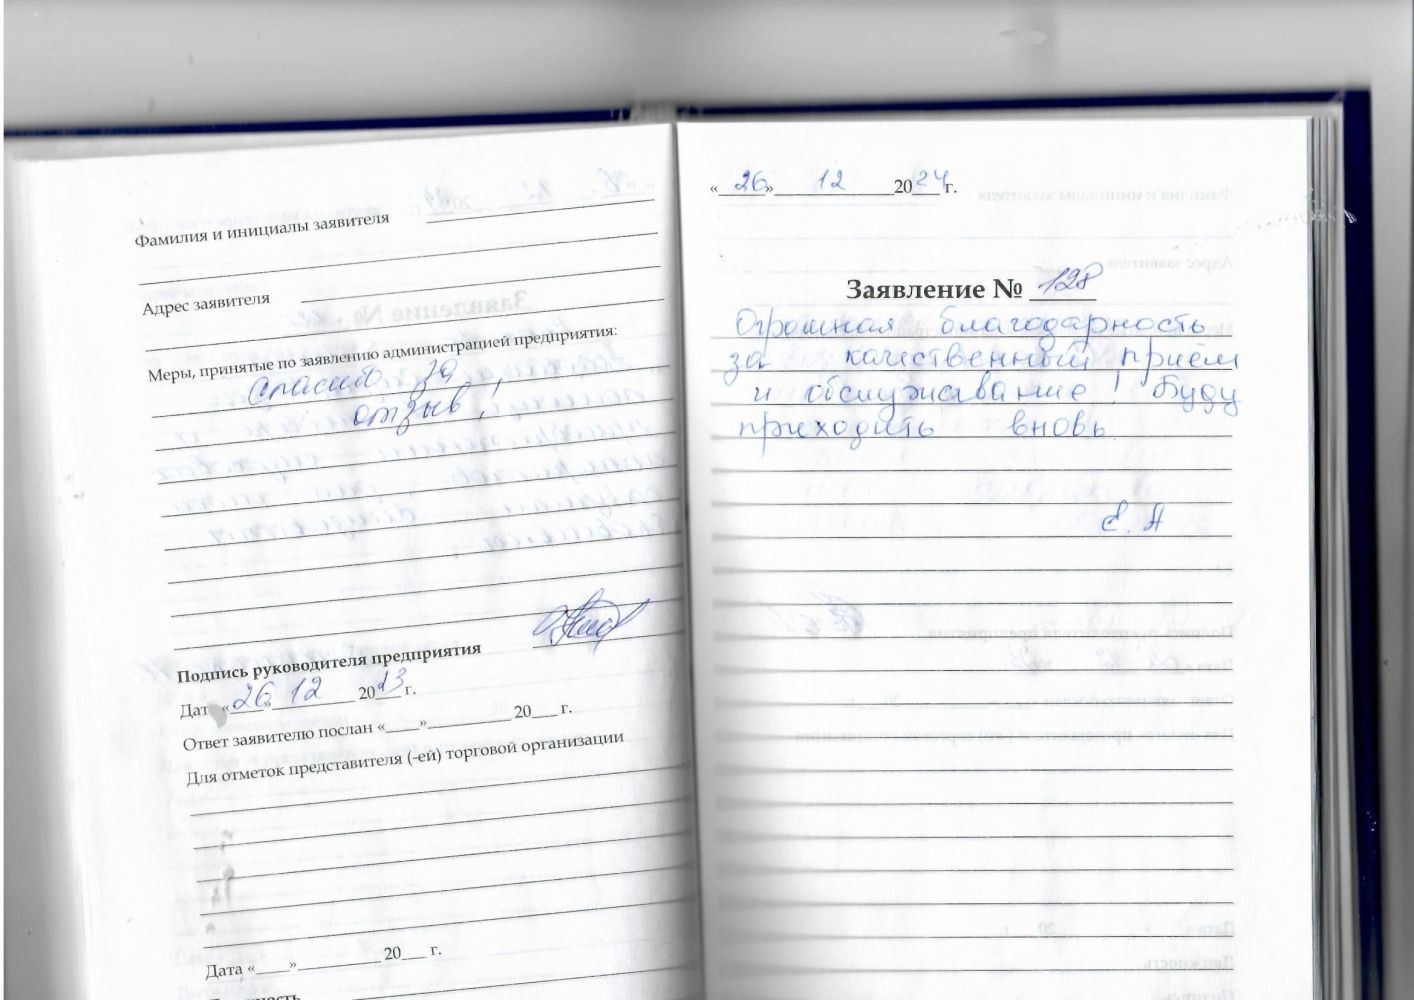 Фамилия и инициалы заявителя
Адрес заявителя
Меры, принятые по заявлению администрацией предприятия:
спасибо за
отзыв!
Подпись руководителя предприятия
Дата «26» 12 2023 г.
Ответ заявителю послан «____»__________ 20___ г.
Для отметок представителя (-ей) торговой организации
Дата «____»__________ 20___ г.
«26» 12 2024 г.
Заявление № 128
Огромная благодарность
за качественный приём
и обслуживание! Буду
приходить вновь
Е. А